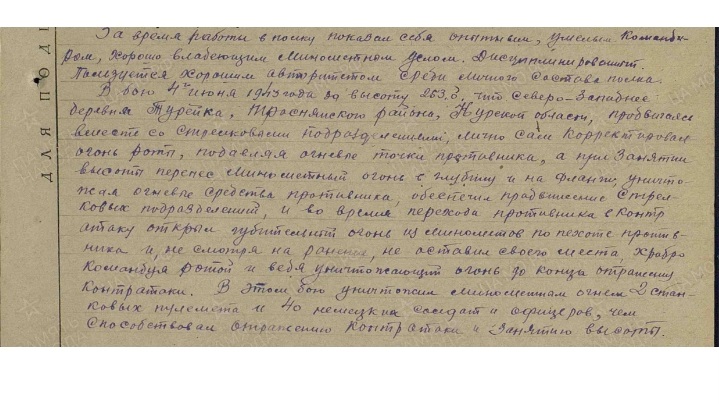 За время работы в полку показал себя опытным, умелым команди-
ром, хорошо владеющим минометным делом. Дисциплинирован.
Пользуется хорошим авторитетом среди личного состава полка.
В бою 4го июня 1943 года за высоту 253.6, что северо-западнее
деревни Турейка, Троснянского района, Курской области, продвигаясь
вместе со стрелковыми подразделениями, лично сам корректировал
огонь роты, подавляя огневые точки противника, а при занятии
высоты перенес минометный огонь в глубину и на фланги, уничто-
жая огневые средства противника, обеспечил продвижение стрел-
ковых подразделений, и во время перехода противника в контр
атаку открыл губительный огонь из минометов по пехоте против-
ника и, не смотря на ранение, не оставил своего места, храбро
командуя ротой и ведя уничтожающий огонь до конца отражения
контратаки. В этом бою уничтожил минометным огнем 2 стан-
ковых пулемета и 40 немецких солдат и офицеров, чем
способствовал отражению контратаки и занятию высоты.
ДЛЯ ПОД